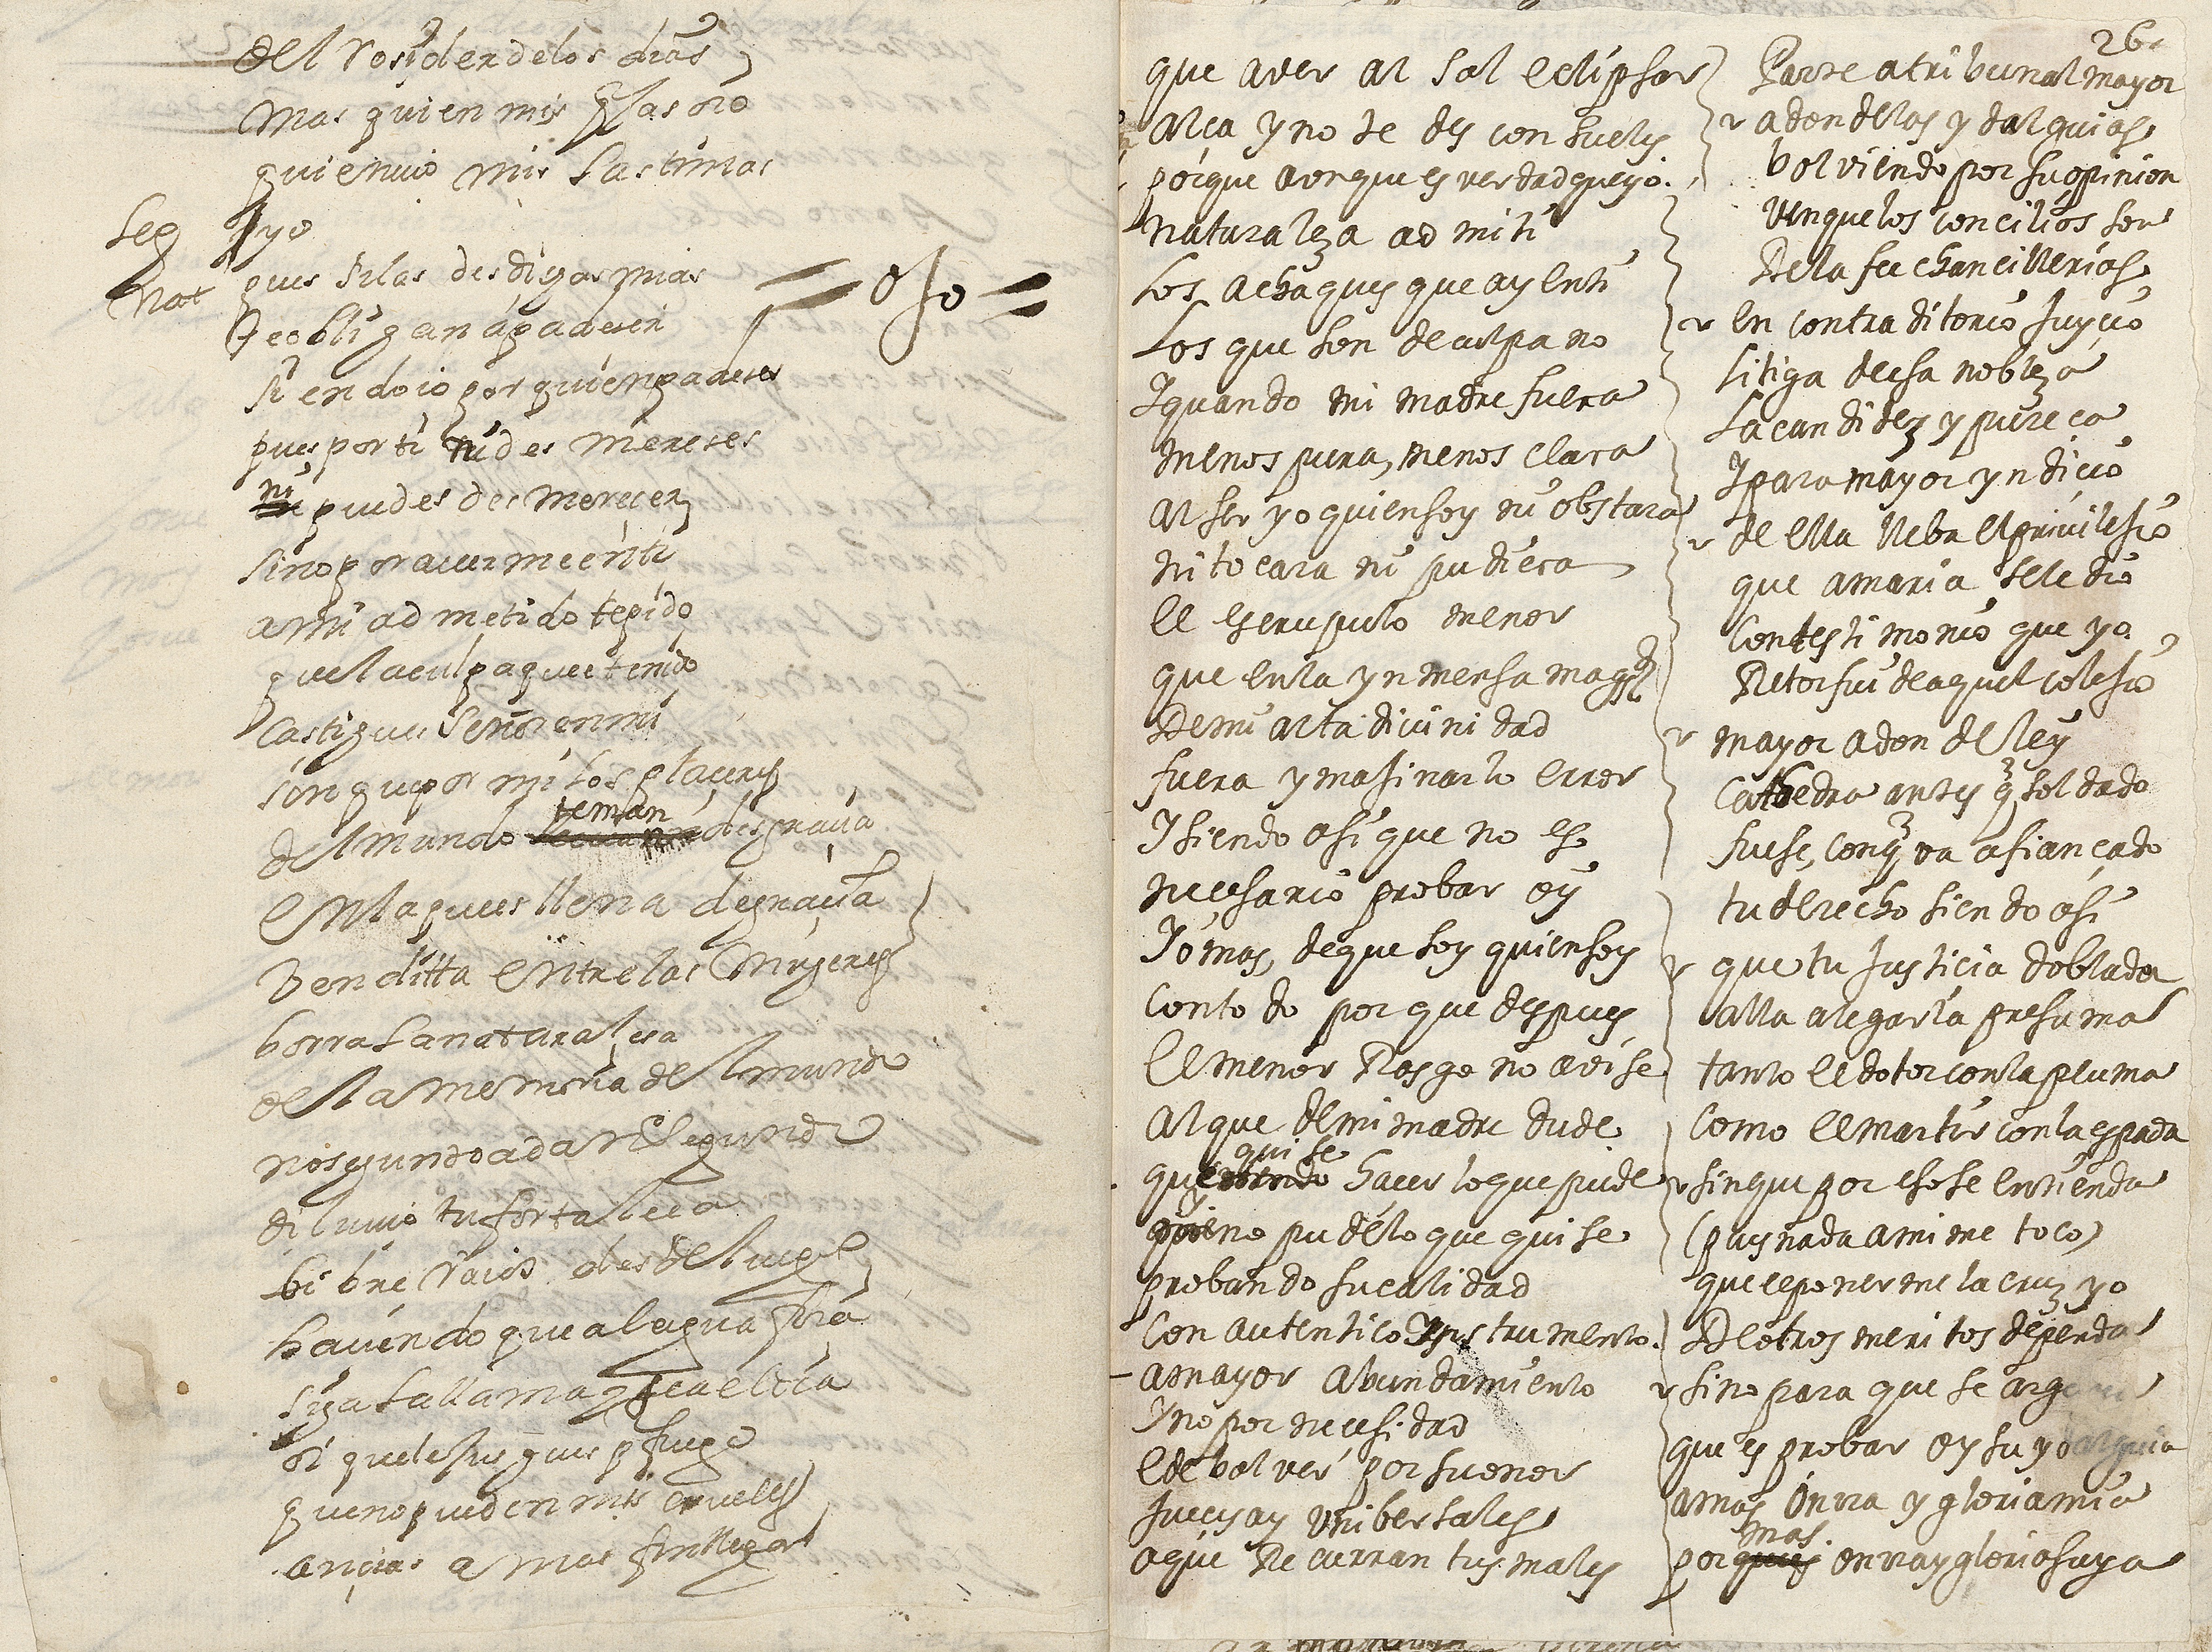 del rosider delos dias
mas quien mis glas oio
quien uio mis lastimas
Seg yo
Nat pues si las desdigas mias
te obligan a padeser
siendo io por quien padeses
pues por ti ni des mereses
ni puedes des mereçer
sino por auerme en ti
a mi admetido te pido
que la culpa que e tenido
castigues Señor en mi
sin que por mi los plaçeres
del mundo teman desgraçia
en la que es llena de graçia
benditta entre las mujeres
borra la naturalesa
de la memoria del mundo
no segundo a dar segundo
diluuio tu fortaleça
bibre raios desde luego
hauiendo que al agua fria
siga la llama
di que le sus que fuego
que no pueden mis crueles
ançias a mas fin llegar
=ojo=
que a ver al sol eclipsar
alça y no te des consuelos
porque aonque es verdad que yo
naturaleza admiti
los achaques que ay en ti
los que son de culpa no
Y quando mi madre fuera
menos pura, menos clara
al ser yo quien soy no obstara
ni tocara ni pudiera
el escrupulo menor
que en la ynmensa magd
de mi alta diuinidad
fuera ymaginarlo error
Y siendo asi que no es
necesario probar oy
Yo mas, de que soy quien soy
con todo porque despues
el menor Rasgo no avise
al que de mi madre dude
quise hacer lo que pude
y no pude lo que quise
probando su calidad
con autentico Ynstrumento
a mayor abundamiento
y no por necesidad
e de bolver por su onor
Jueces ay vnibersales
a que Recurran tus males
26
Parte a tribunal mayor
a donde las ydalguias
bolviendo por su opinion
vn que los concilios son
De la fee chancillerias
en contraditorio Juycio
litiga de esa nobleza
la candidez y pureça
Y para mayor yndicio
de ella lleba el privilesio
que a maria se le dio
con testimonio que yo
Retor fui de aquel colesio
mayor a don de ley
Cathedra antes q soldado
fuese, con q va afiançado
tu derecho siendo asi
que tu Justicia doblada
alla alegarla presuma
tanto el dotor con la pluma
como el martir con la espada
sin que por eso se entienda
(pues nada a mi me toco)
que el ponerme la cruz yo
De otros meritos dependa
sino para que se
que es probar oy su ydalguia
a mas onrra y gloria mia
por mas onrra y gloria suya